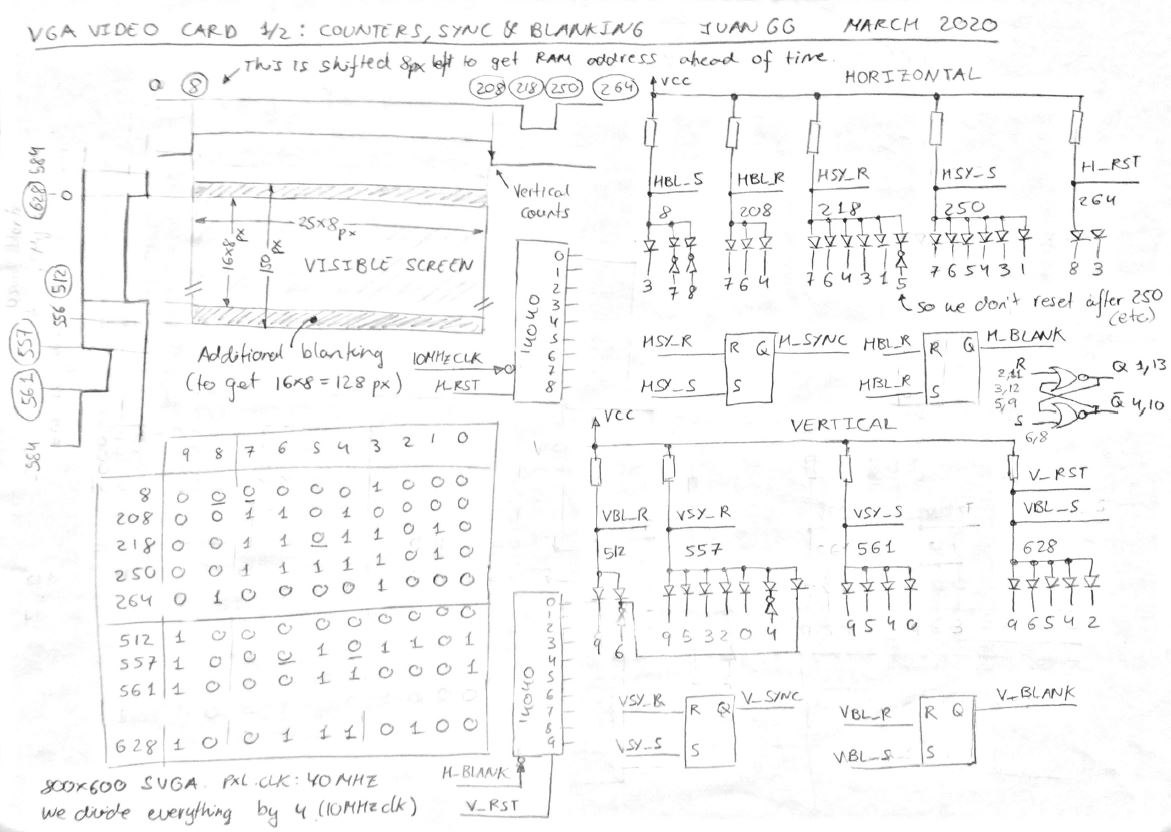 VGA VIDEO CARD 1/2: COUNTERS, SYNC & BLANKING JUAN GG MARCH 2020
This is shifted 8px left to get RAM address ahead of time.
0 8 208 218 250 264
HORIZONTAL
VCC
HBL_S HBL_R HSY_R HSY_S H_RST
8 208 218 250 264
3 7 8 7 6 4 7 6 4 3 1 5 7 6 5 4 3 1 8 3
so we don't reset after 250 (etc)
584
628
0
512
556
557
561
584
Vertical counts
25x8px
16x8px
150px
VISIBLE SCREEN
Additional blanking
(to get 16x8 = 128 px)
0
1
2
3
4
5
6
7
8
14040
10MHz CLK
H_RST
HSY_R R Q H_SYNC
HSY_S S
HBL_R R Q H_BLANK
HBL_R S
R
2,11
3,12
5,9
S
6,8
Q 1,13
Q̅ 4,10
VCC
VERTICAL
VBL_R VSY_R VSY_S V_RST
VBL_S
512 557 561 628
9 6 9 5 3 2 0 4 9 5 4 0 9 6 5 4 2
9 8 7 6 5 4 3 2 1 0
8 0 0 0 0 0 0 1 0 0 0
208 0 0 1 1 0 1 0 0 0 0
218 0 0 1 1 0 1 1 0 1 0
250 0 0 1 1 1 1 1 0 1 0
264 0 1 0 0 0 0 1 0 0 0
512 1 0 0 0 0 0 0 0 0 0
557 1 0 0 0 1 0 1 1 0 1
561 1 0 0 0 1 1 0 0 0 1
628 1 0 0 1 1 1 0 1 0 0
0
1
2
3
4
5
6
7
8
9
14040
H_BLANK
V_RST
VSY_R R Q V_SYNC
VSY_S S
VBL_R R Q V_BLANK
VBL_S S
800x600 SVGA. PXL.CLK: 40MHZ
we divide everything by 4 (10MHz clk)